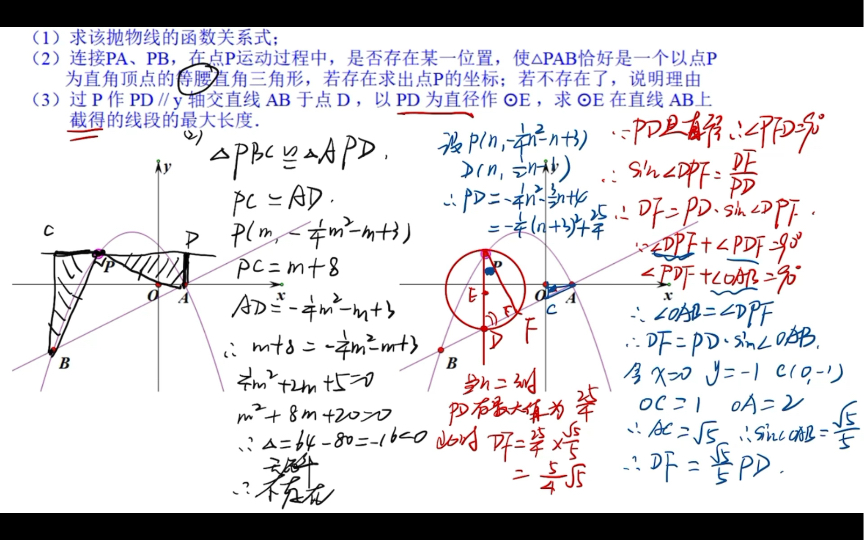 （1）求该抛物线的函数关系式；
（2）连接PA、PB，在点P运动过程中，是否存在某一位置，使△PAB恰好是一个以点P
为直角顶点的等腰直角三角形，若存在求出点P的坐标；若不存在了，说明理由
（3）过 P 作 PD // y 轴交直线 AB 于点 D ，以 PD 为直径作 ⊙E ，求 ⊙E 在直线 AB上
截得的线段的最大长度．
(2)
△PBC≌△APD.
PC=AD.
P(m, -1/4m²-m+3)
PC=m+8
AD=-1/4m²-m+3
∴ m+8=-1/4m²-m+3
1/4m²+2m+5=0
m²+8m+20=0
∴△=64-80=-16<0
∴不存在
y
C
P
D
O
A
x
B
设P(n,-1/4n²-n+3)
∴PD=-1/4n²-3/2n+4
=-1/4(n+3)²+25/4
y
P
E
O
A
x
C
D
F
B
PD有最大值为25/4
此时 DF=25/4×√5/5
=5/4√5
∵PD是直径∴∠PFD=90°
∴sin∠DPF=DF/PD
∴DF=PD·sin∠DPF.
∵∠DPF+∠PDF=90°
∠PDF+∠OAB=90°
∴∠OAB=∠DPF
∴DF=PD·sin∠OAB.
令x=0 y=-1 C(0,-1)
OC=1 OA=2
∴AC=√5 ∴sin∠OAB=√5/5
∴DF=√5/5PD.